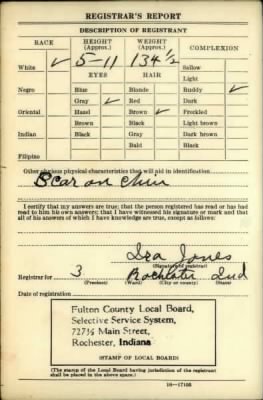 REGISTRAR'S REPORT
DESCRIPTION OF REGISTRANT
RACE HEIGHT (Approx.) WEIGHT (Approx.) COMPLEXION
White ✓ 5-11 134 ½ Sallow
EYES HAIR Light
Negro Blue Blonde Ruddy ✓
Gray ✓ Red Dark
Oriental Hazel Brown ✓ Freckled
Brown Black Light brown
Indian Black Gray Dark brown
Bald Black
Filipino
Other obvious physical characteristics that will aid in identification
Scar on Chin
I certify that my answers are true; that the person registered has read or has had
read to him his own answers; that I have witnessed his signature or mark and that
all of his answers of which I have knowledge are true, except as follows:
Ira Jones
(Signature of registrar)
Registrar for 3 Rochester Ind
(Precinct) (Ward) (City or county) (State)
Date of registration
Fulton County Local Board,
Selective Service System,
727½ Main Street,
Rochester, Indiana
(STAMP OF LOCAL BOARD)
(The stamp of the Local Board having jurisdiction of the registrant
shall be placed in the above space.)
16—17105